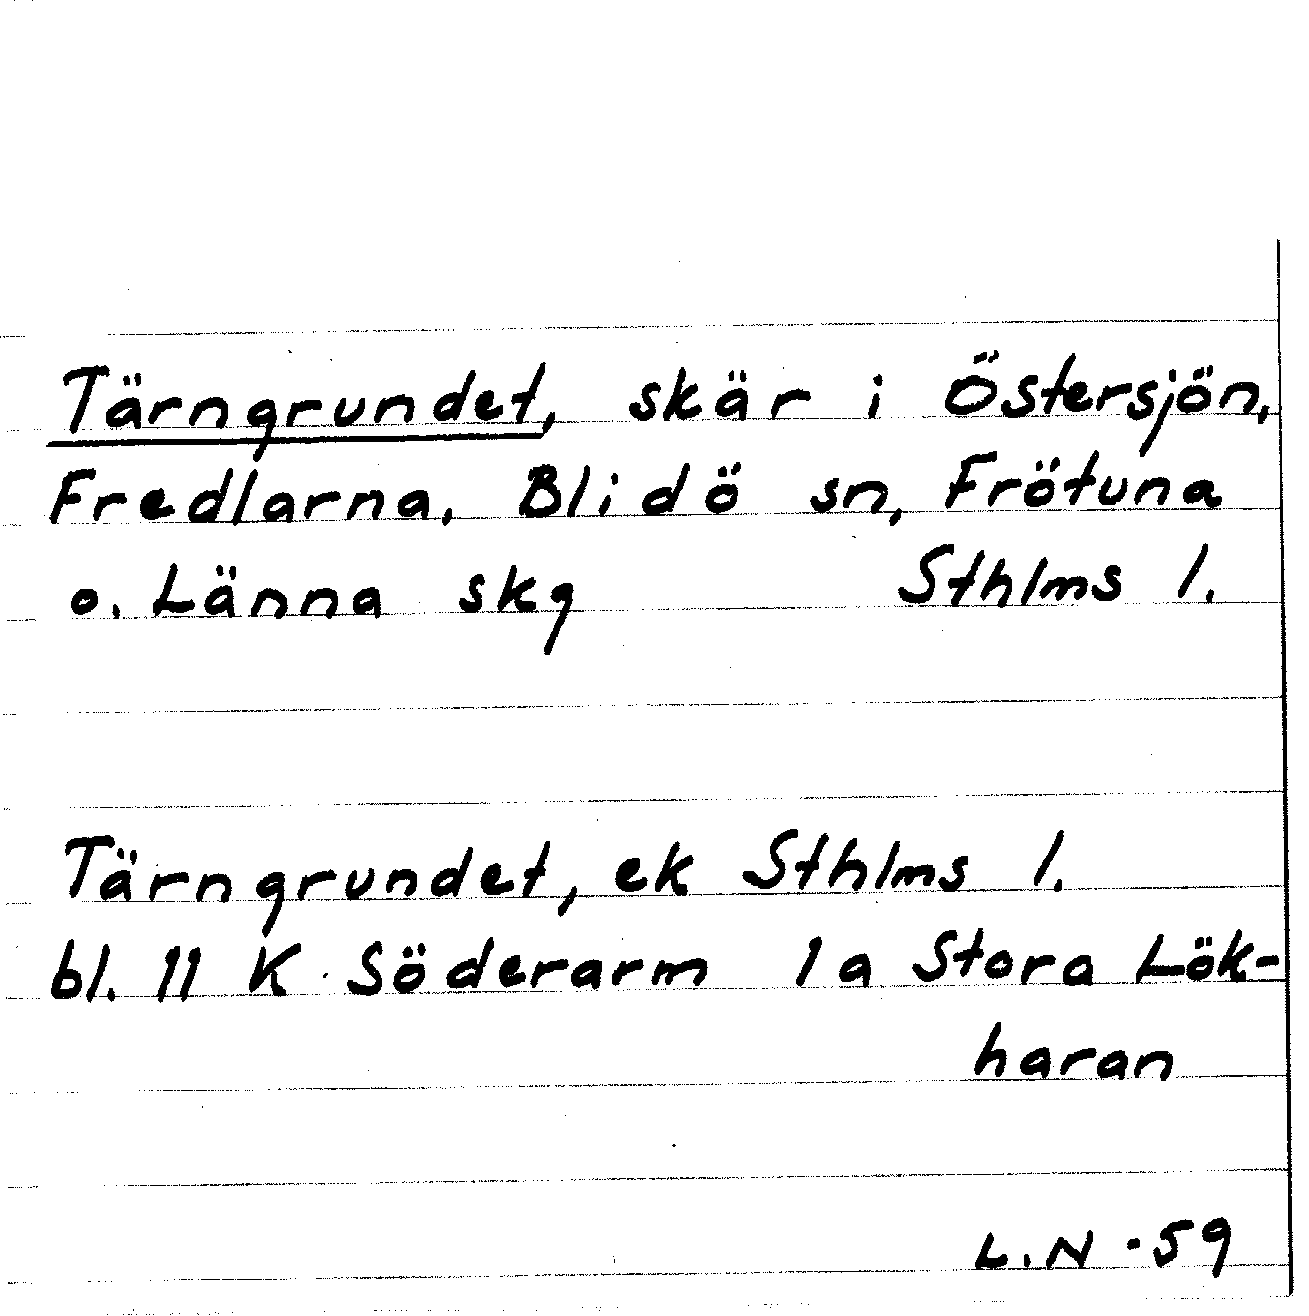 Tärngrundet, skär i Östersjön,
Fredlarna, Blidö sn, Frötuna
o. Länna skg Sthlms l.
Tärngrundet, ek Sthlms l.
bl. 11 K Söderarm 1a Stora Lök-
haran
L.N -59